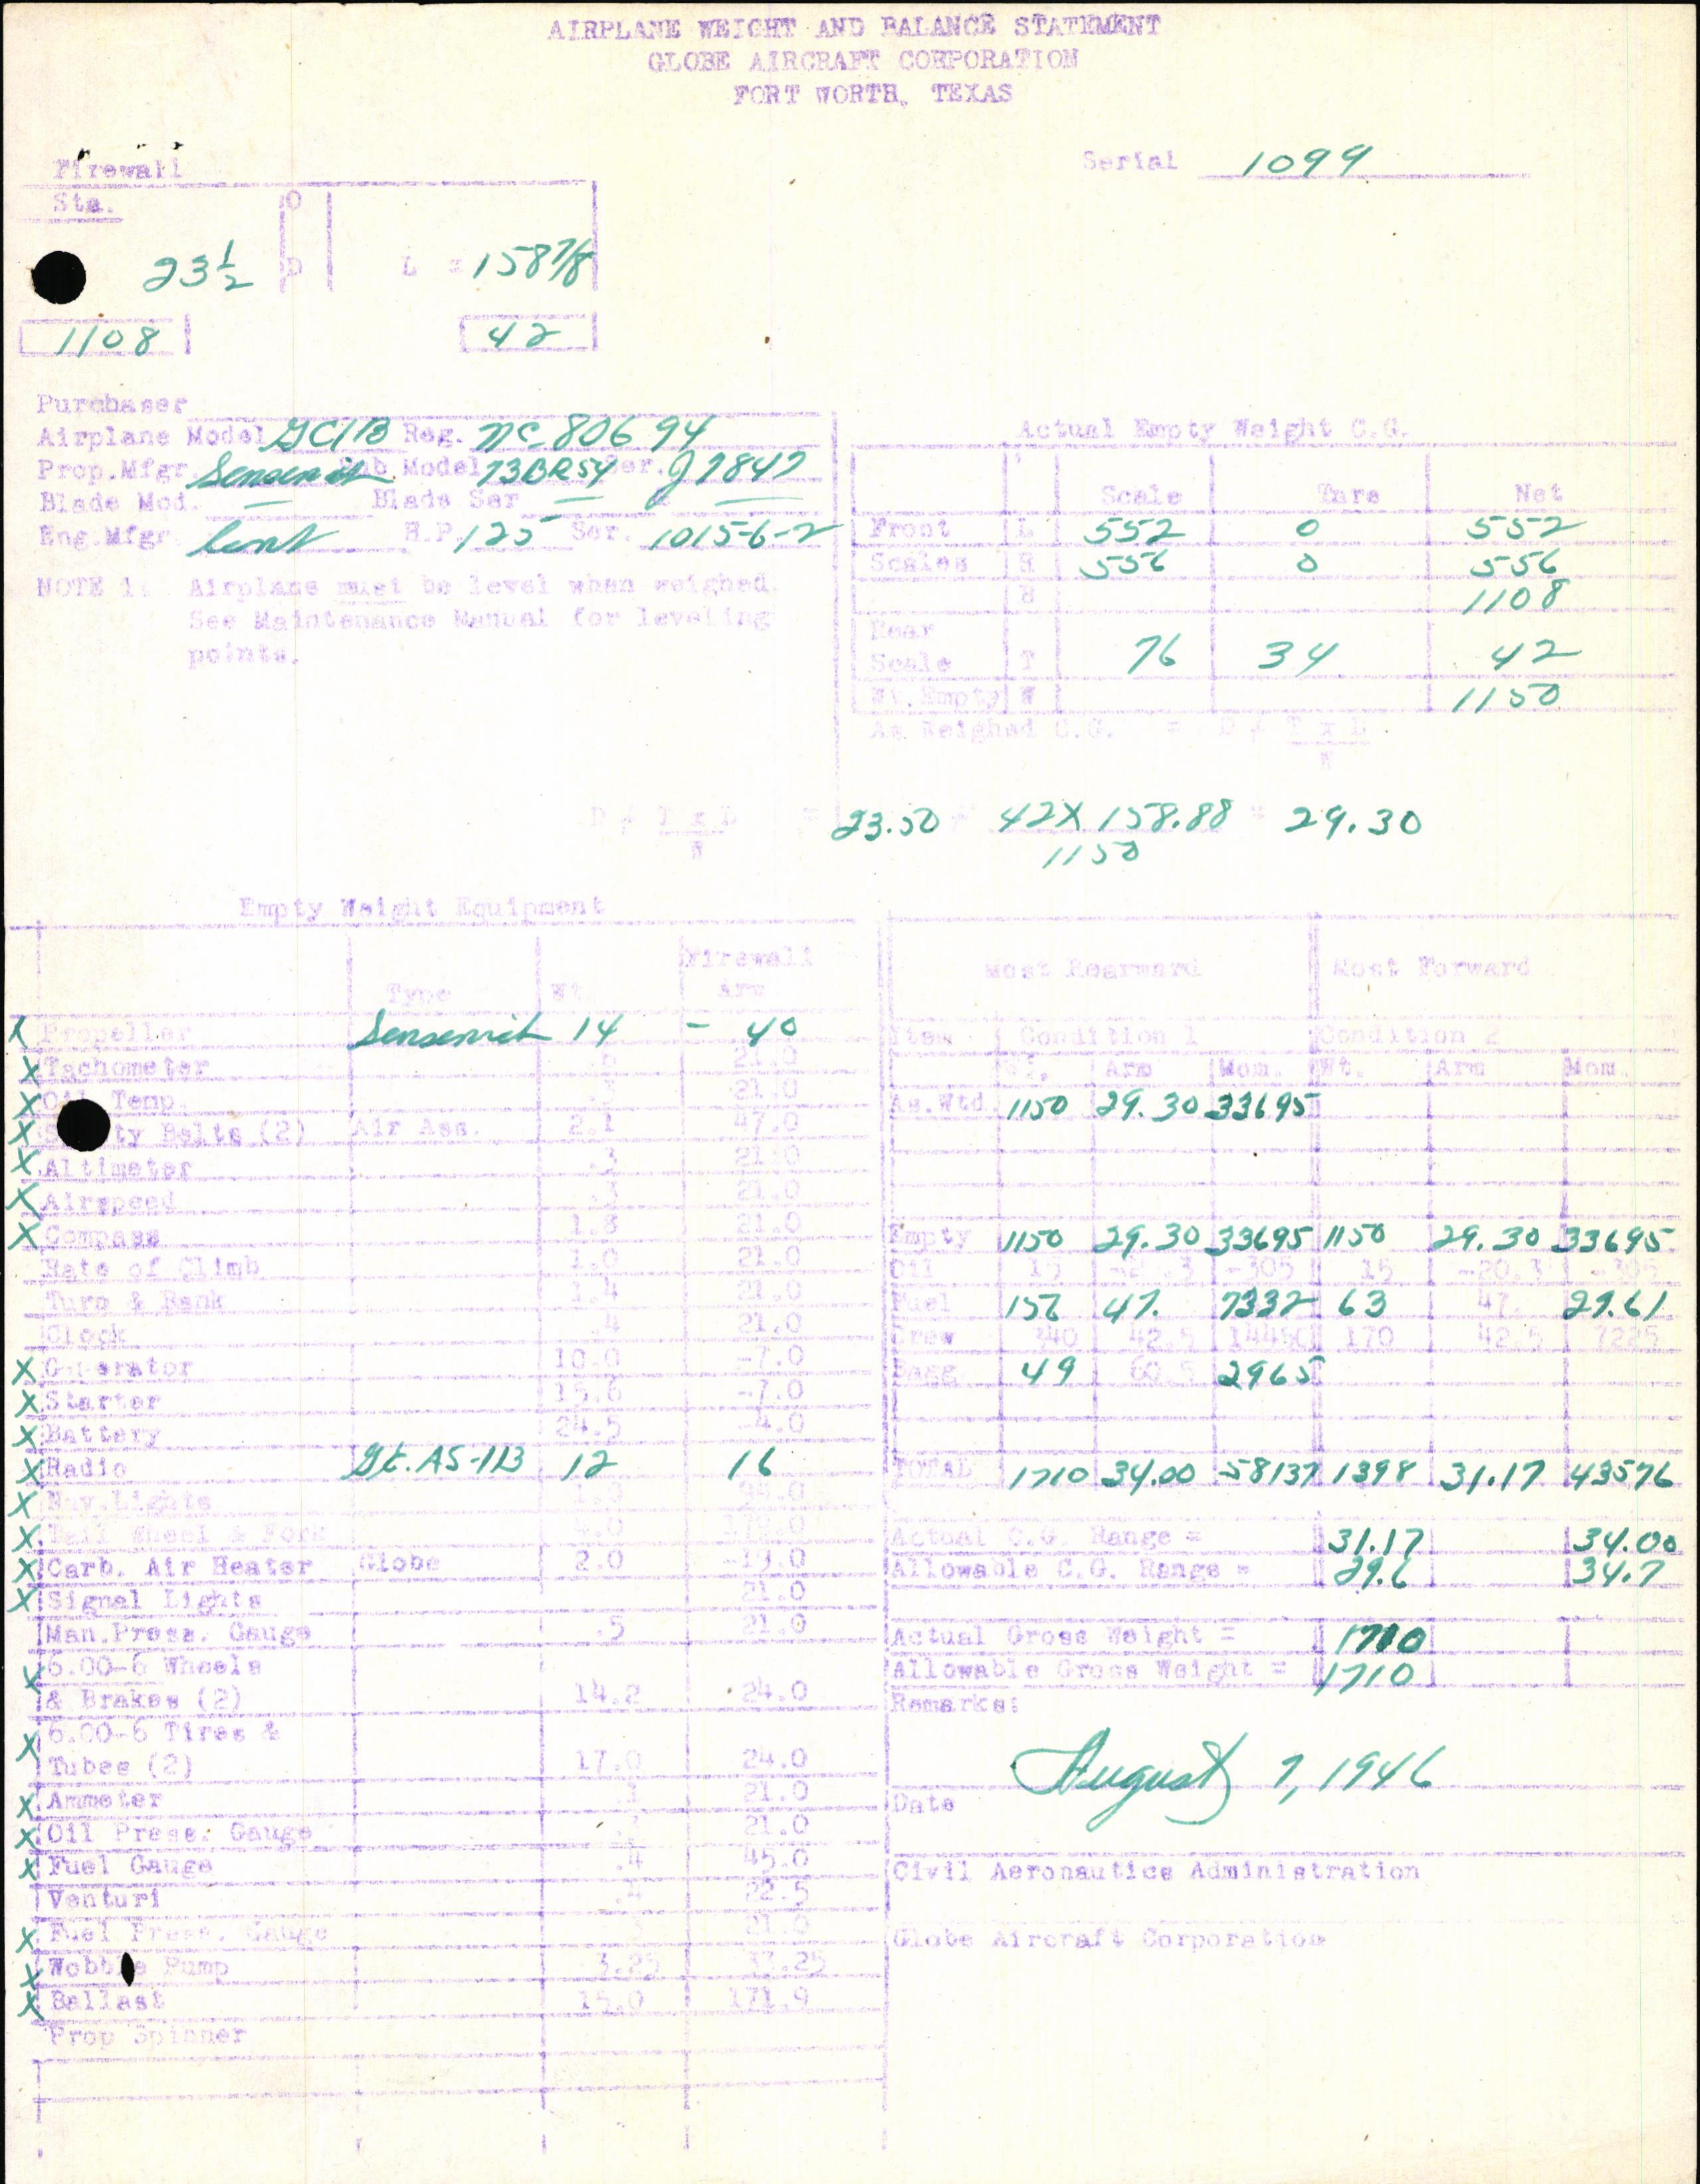 AIRPLANE WEIGHT AND BALANCE STATEMENT
GLOBE AIRCRAFT CORPORATION
FORT WORTH, TEXAS
Firewall
Serial 1099
Sta. O
23 1/2 D L = 158 7/8
1108 42
Purchaser
Airplane Model GC1B Reg. NC-80694
Prop.Mfgr. Sensenich Hub Model 73BR54 Ser. J7847
Blade Mod. — Blade Ser — —
Eng.Mfgr. Cont H.P. 125 Ser. 1015-6-2
NOTE 1. Airplane must be level when weighed.
See Maintenance Manual for leveling
points.
Actual Empty Weight C.G.
Scale Tare Net
Front L 552 0 552
Scales R 556 0 556
1108
Rear
Scale T 76 34 42
Wt.Empty W 1150
As Weighed C.G. = D ≠ T x L
W
D ≠ T x L = 23.50 42 X 158.88 = 29.30
W 1150
Empty Weight Equipment
Type Wt. Firewall Arm
X Propeller Sensenich 14 - 40
X Tachometer 21.0
X Oil Temp. .3 21.0
X Safety Belts (2) Air Ass. 2.1 47.0
X Altimeter .3 21.0
X Airspeed .3 21.0
X Compass 1.8 21.0
Rate of Climb 1.0 21.0
Turn & Bank 1.4 21.0
Clock .4 21.0
X Generator 10.0 -7.0
X Starter 15.6 -7.0
X Battery 24.5 -4.0
X Radio Gt. AS-1B 12 16
X Nav.Lights
X Tail Wheel & Fork
X Carb. Air Heater Globe 2.0 -19.0
X Signal Lights 21.0
Man.Press. Gauge .5 21.0
X 6.00-6 Wheels
& Brakes (2) 14.2 24.0
X 6.00-6 Tires &
Tubes (2) 17.0 24.0
X Ammeter 21.0
X Oil Press. Gauge 21.0
X Fuel Gauge .4 45.0
Venturi .4 22.5
X Fuel Press. Gauge 21.0
X Wobble Pump 3.25 33.25
X Ballast 15.0 171.9
Prop Spinner
Most Rearward Most Forward
Item Condition 1 Condition 2
Wt. Arm Mom. Wt. Arm Mom.
As.Wtd 1150 29.30 33695
Empty 1150 29.30 33695 1150 29.30 33695
Oil 15 -20.3 -305 15 -20.3 -305
Fuel 156 47. 7332 63 47. 29.61
Crew 340 42.5 14450 170 42.5 7225
Bagg 49 60.5 2965
TOTAL 1710 34.00 58137 1398 31.17 43576
Actual C.G. Range = 31.17 34.00
Allowable C.G. Range = 29.6 34.7
Actual Gross Weight = 1710
Allowable Gross Weight = 1710
Remarks:
August 7, 1946
Date
Civil Aeronautics Administration
Globe Aircraft Corporation